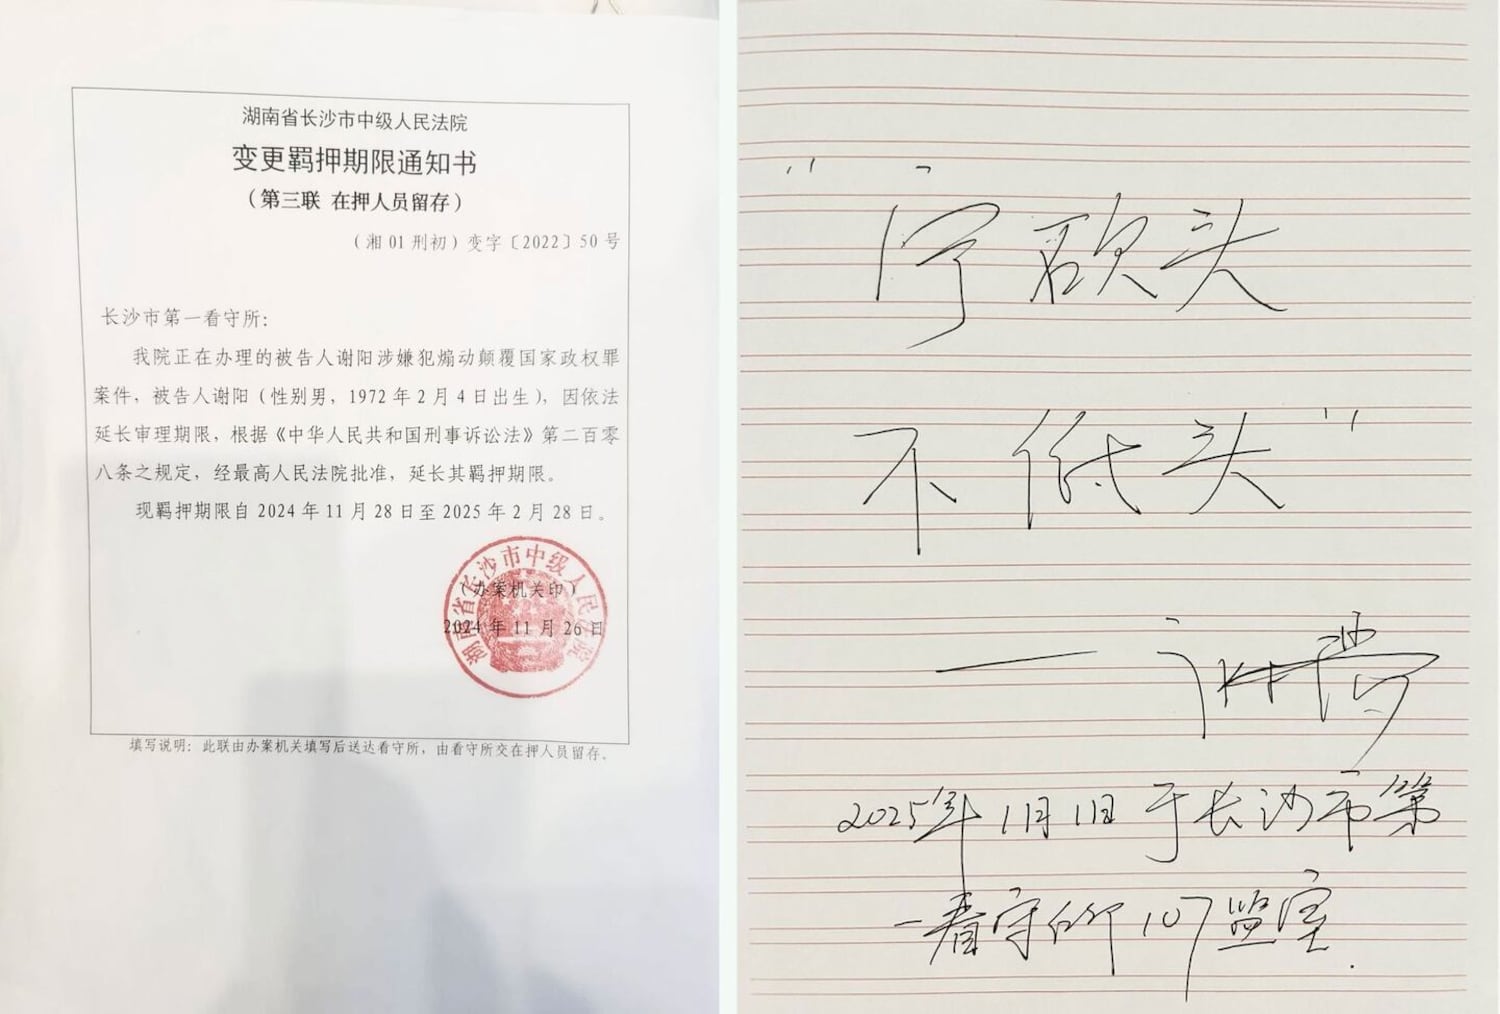 湖南省长沙市中级人民法院
变更羁押期限通知书
（第三联 在押人员留存）
（湘 01 刑初）变字〔2022〕50 号
长沙市第一看守所：
我院正在办理的被告人谢阳涉嫌犯煽动颠覆国家政权罪
案件，被告人谢阳（性别男，1972 年 2 月 4 日出生），因依法
延长审理期限，根据《中华人民共和国刑事诉讼法》第二百零
八条之规定，经最高人民法院批准，延长其羁押期限。
现羁押期限自 2024 年 11 月 28 日至 2025 年 2 月 28 日。
湖南省长沙市中级人民法院
（办案机关印）
2024 年 11 月 26 日
填写说明：此联由办案机关填写后送达看守所，由看守所交在押人员留存。
“宁砍头
不低头”
——谢阳
2025年1月1日于长沙市第
一看守所107监室.